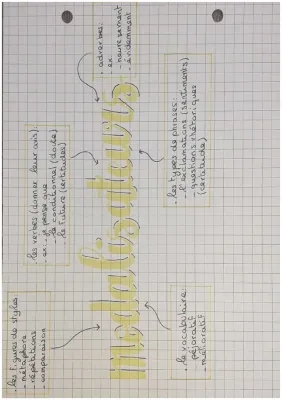 modalisateurs
. les figures de styles
- métaphore
- répétitions
- comparaison
. les verbes (donner leur avis)
ex: - je pense que
- le conditionnel (doute)
- le future (certitudes)
. adverbes:
ex:
- heureusement
- évidemment
. le vocabulaire:
- péjoratif
- mélioratif
. les types de phrases:
- l'exclamations (sentiments)
- questions rhétoriques
(certitude)